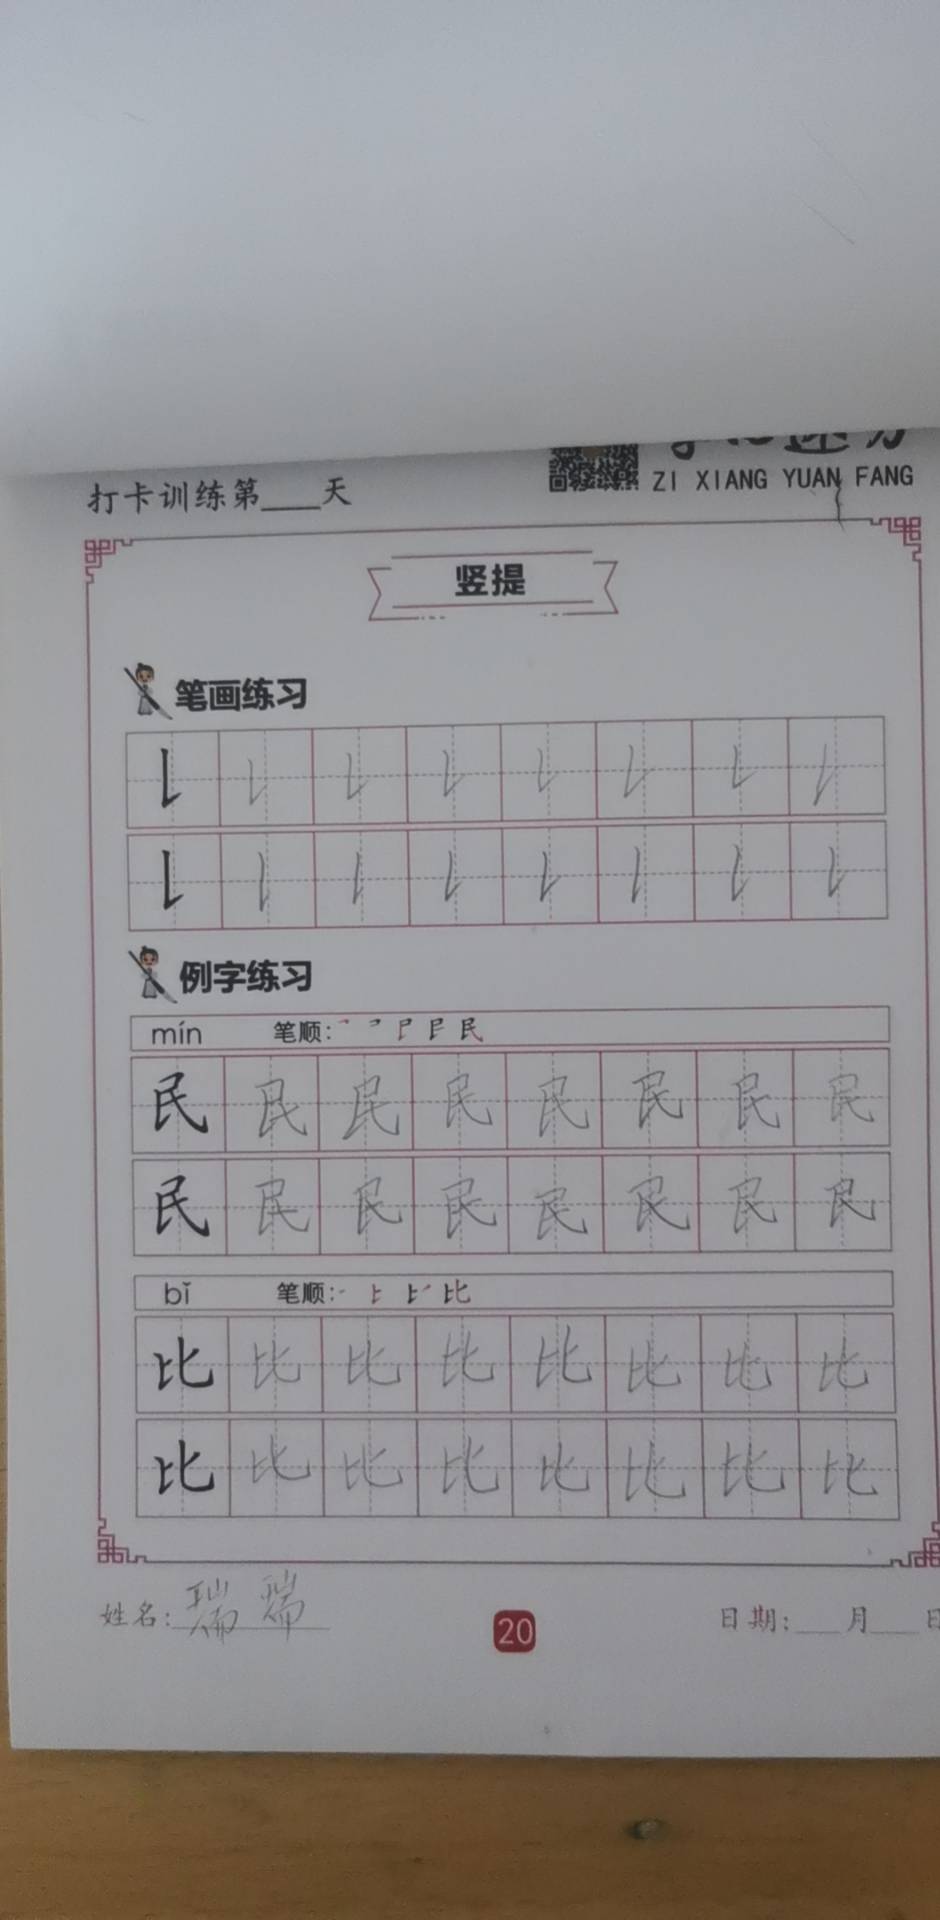 打卡训练第____天
ZI XIANG YUAN FANG
竖提
笔画练习
例字练习
mín 笔顺：
民 民 民 民 民 民 民 民
民 民 民 民 民 民 民 民
bǐ 笔顺： 比
比 比 比 比 比 比 比 比
比 比 比 比 比 比 比 比
姓名：瑞瑞
20
日期：____月____日